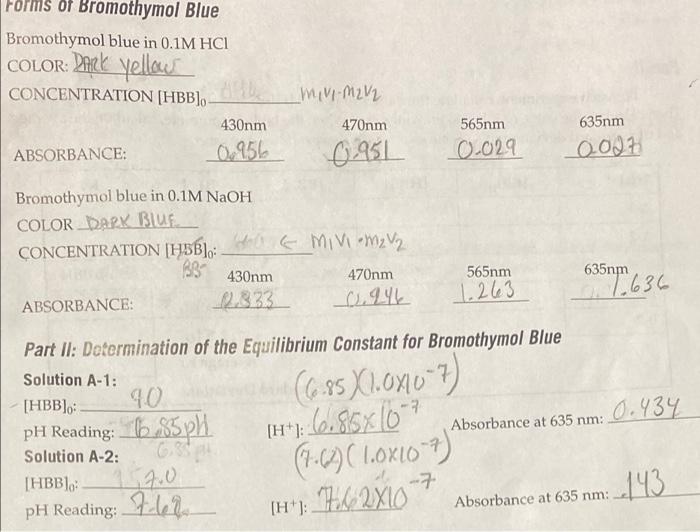 Forms of Bromothymol Blue
Bromothymol blue in 0.1M HCl
COLOR: Dark yellow
CONCENTRATION [HBB]₀ M₁V₁-M₂V₂
430nm 470nm 565nm 635nm
ABSORBANCE: 0.956 0.951 0.029 0.027
Bromothymol blue in 0.1M NaOH
COLOR DARK BLUE
CONCENTRATION [HBB]₀: ← M₁V₁=M₂V₂
BB⁻
430nm 470nm 565nm 635nm
ABSORBANCE: 0.246 1.263 1.636
Part II: Determination of the Equilibrium Constant for Bromothymol Blue
Solution A-1: (6.85)(1.0x10⁻⁷)
[HBB]₀: 9.0
pH Reading: 6.85pH [H⁺]: 6.85x10⁻⁷ Absorbance at 635 nm: 0.434
6.85
Solution A-2: (7.62)(1.0x10⁻⁷)
[HBB]₀: 7.0
pH Reading: 7.62 [H⁺]: 7.62x10⁻⁷ Absorbance at 635 nm: .143